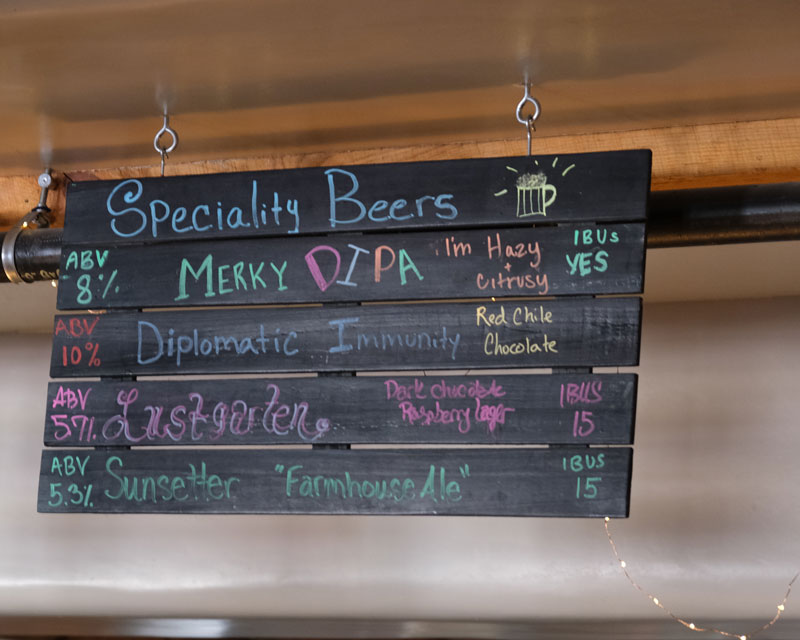 Speciality Beers
ABV
8%
MERKY DIPA
I'm Hazy
+
Citrusy
IBUs
YES
ABV
10%
Diplomatic Immunity
Red Chile
Chocolate
ABV
5.7%
Lustgarten
Dark chocolate
Raspberry lager
IBUS
15
ABV
5.3%
Sunsetter "Farmhouse Ale"
IBUS
15